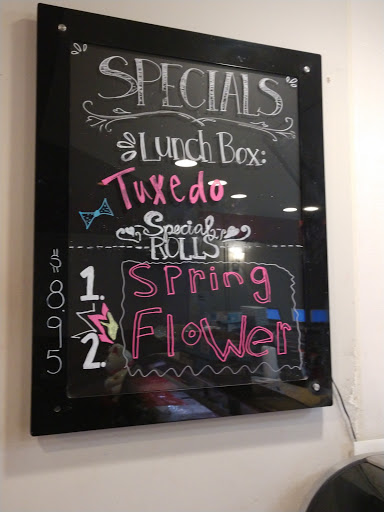 SPECIALS
Lunch Box:
Tuxedo
Special
ROLLS
1. Spring
2. Flower
8.95